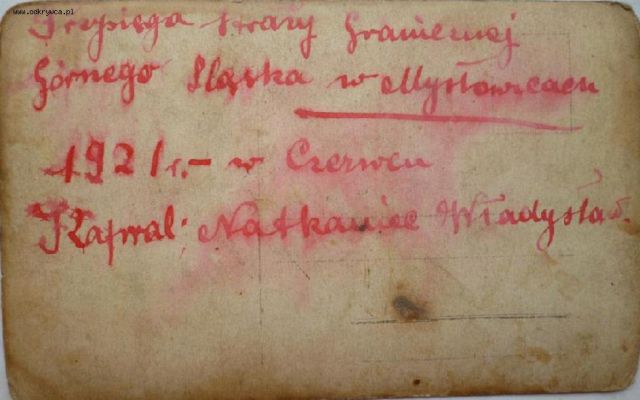 www.odkrywca.pl
Przysięga straży Granicznej
Górnego Śląska w Mysłowicach
1921 r.- w Czerwcu
Kapral: Natkaniec Władysław.